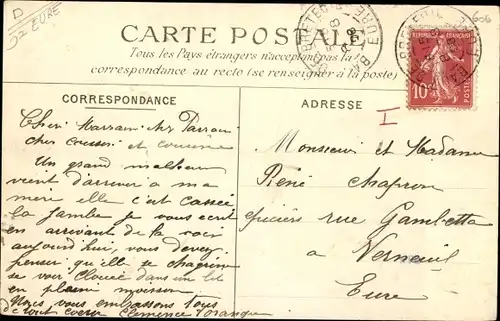 D
27 EURE
606
CARTE POSTALE
Tous les Pays étrangers n'acceptent pas la
correspondance au recto (se renseigner à la poste)
CORRESPONDANCE
Cher Marrain cher Parrain
cher cousin et cousine
Un grand malheur
vient d'arriver a ma
mere elle c'est cassée
la jambe je vous ecrit
en arrivant de la voir
aujourd'hui, vous devez
penser qu'elle se chagrine
se voir Clouée dans un lit
en pleine moisson
Nous vous embrassons tous
de tout coeur Clemence
ADRESSE
I
Monsieur et Madame
René Chapron
épiciers rue Gambetta
a Verneuil
Eure
10
POSTES